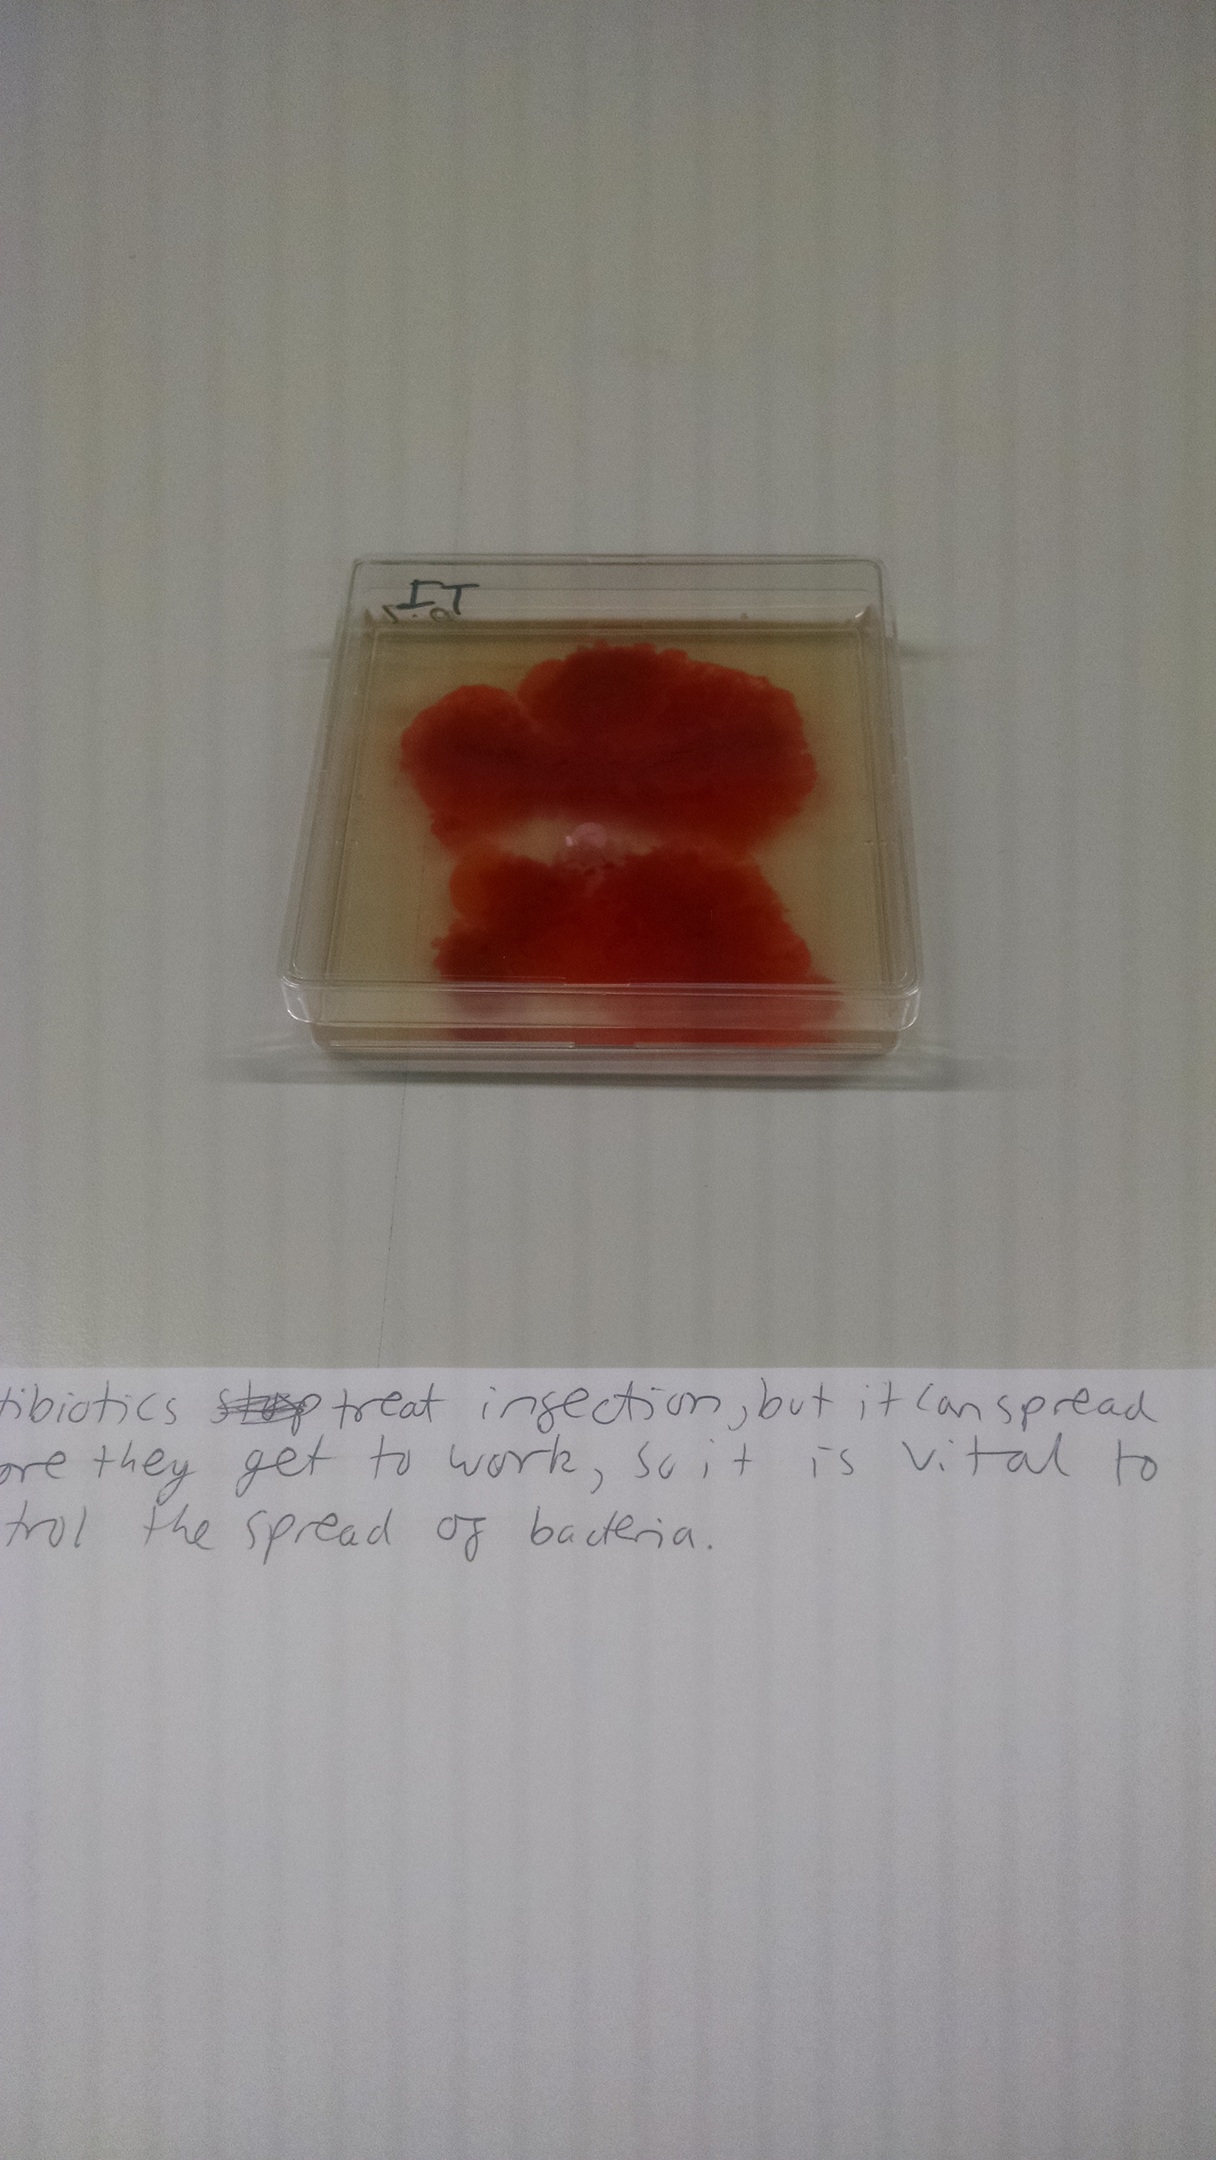 IT
tibiotics stop treat infection, but it can spread
ore they get to work, so it is vital to
trol the spread of bacteria.